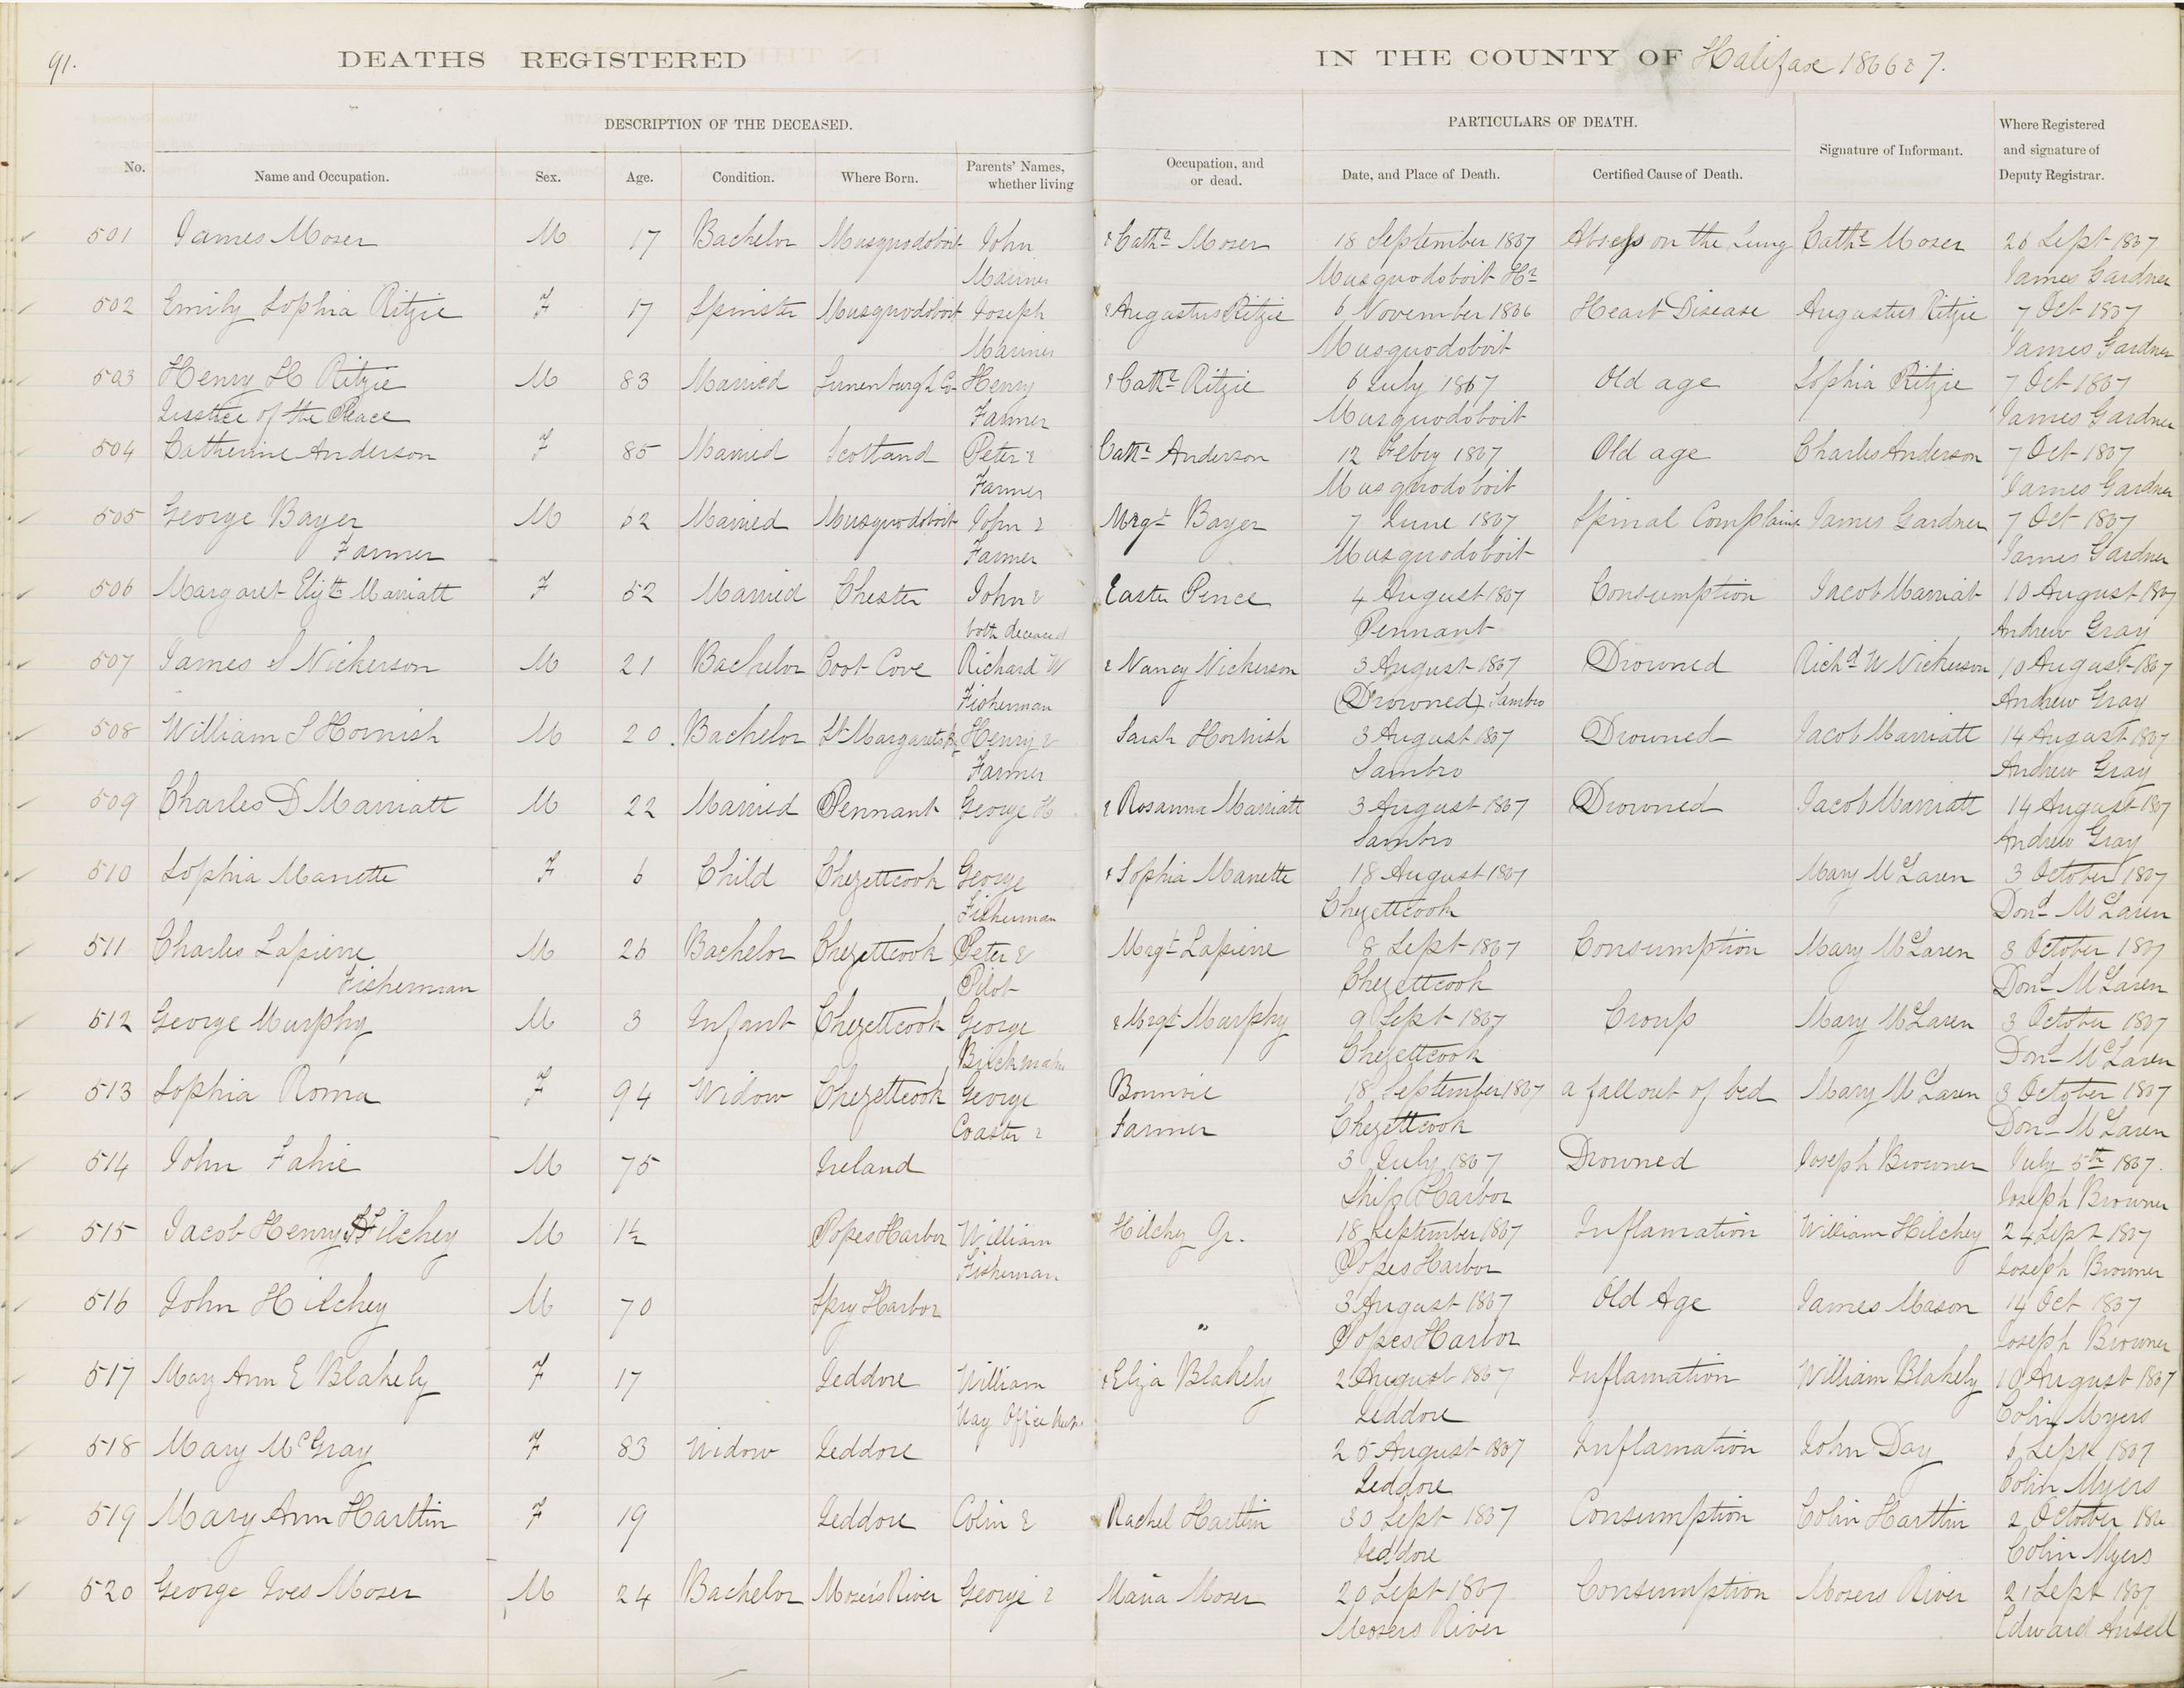 91.
DEATHS REGISTERED IN THE COUNTY OF Halifax 1866 & 7.
DESCRIPTION OF THE DECEASED. PARTICULARS OF DEATH.
No. Name and Occupation. Sex. Age. Condition. Where Born. Parents' Names, whether living Occupation, and or dead. Date, and Place of Death. Certified Cause of Death. Signature of Informant. Where Registered and signature of Deputy Registrar.
501 James Moser M 17 Bachelor Musquodoboit John & Cathe Moser 18 September 1867 Abscess on the Lung Cathe Moser 26 Sept 1867
Mariner Musquodoboit Hr James Gardner
502 Emily Sophia Ritzie F 17 Spinster Musquodoboit Joseph & Augustus Ritzie 6 November 1866 Heart Disease Augustus Ritzie 7 Oct 1867
Mariner Musquodoboit James Gardner
503 Henry H Ritzie M 83 Married Lunenburgh Co Henry & Cathe Ritzie 6 July 1867 Old age Sophia Ritzie 7 Oct 1867
Justice of the Peace Farmer Musquodoboit James Gardner
504 Catherine Anderson F 85 Married Scotland Peter & Cathe Anderson 12 Feby 1867 Old age Charles Anderson 7 Oct 1867
Farmer Musquodoboit James Gardner
505 George Bayer M 62 Married Musquodoboit John & Mrgt Bayer 7 June 1867 Spinal Complaint James Gardner 7 Oct 1867
Farmer Farmer Musquodoboit James Gardner
506 Margaret Elizth Marriatt F 52 Married Chester John & Easter Pence 4 August 1867 Consumption Jacob Marriat 10 August 1867
both deceased Pennant Andrew Gray
507 James S Nickerson M 21 Bachelor Coot Cove Richard W & Nancy Nickerson 3 August 1867 Drowned Richd W Nickerson 10 August 1867
Fisherman (Drowned) Sambro Andrew Gray
508 William S Hornish M 20. Bachelor St Margarets B Henry & Sarah Hornish 3 August 1867 Drowned Jacob Marriatt 14 August 1867
Farmer Sambro Andrew Gray
509 Charles D Marriatt M 22 Married Pennant George H & Rosanna Marriatt 3 August 1867 Drowned Jacob Marriatt 14 August 1867
Sambro Andrew Gray
510 Sophia Manette F 6 Child Chezettcook George & Sophia Manette 18 August 1867 Mary McLaren 3 October 1867
Fisherman Chezettcook Dond McLaren
511 Charles Lapierre M 26 Bachelor Chezettcook Peter & Mrgt Lapierre 8 Sept 1867 Consumption Mary McLaren 3 October 1867
Fisherman Pilot Chezettcook Dond McLaren
512 George Murphy M 3 Infant Chezettcook George & Mrgt Murphy 9 Sept 1867 Croup Mary McLaren 3 October 1867
Brickmaker Chezettcook Dond McLaren
513 Sophia Roma F 94 Widow Chezettcook George Bonnvie 18 September 1867 a fall out of bed Mary McLaren 3 October 1867
Coaster & Farmer Chezettcook Dond McLaren
514 John Fahie M 75 Ireland 3 July 1867 Drowned Joseph Browner July 5th 1867.
Ship Harbor Joseph Browner
515 Jacob Henry Hilchey M 1½ Popes Harbor William Hilchey Jr. 18 September 1867 Inflamation William Hilchey 24 Sept 1867
Fisherman Popes Harbor Joseph Browner
516 John Hilchey M 70 Spry Harbor 3 August 1867 Old Age James Mason 14 Oct 1867
" Popes Harbor Joseph Browner
517 Mary Ann E Blakely F 17 Jeddore William & Eliza Blakely 2 August 1867 Inflamation William Blakely 10 August 1867
Way Office Jeddore Colin Myers
518 Mary McGray F 83 Widow Jeddore 25 August 1867 Inflamation John Day 6 Sept 1867
Jeddore Colin Myers
519 Mary Ann Harttin F 19 Jeddore Colin & Rachel Harttin 30 Sept 1867 Consumption Colin Harttin 2 October 186
Jeddore Colin Myers
520 George Ives Moser M 24 Bachelor Moser's River George & Maria Moser 20 Sept 1867 Consumption Mosers River 21 Sept 1867
Mosers River Edward Ansell